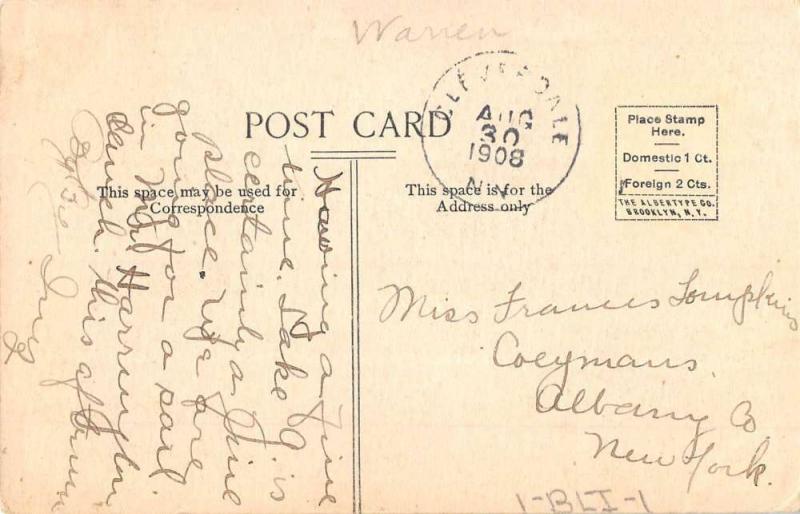 Warren
POST CARD
CLEVERDALE
AUG
30
1908
N.Y.
Place Stamp
Here.
Domestic 1 Ct.
Foreign 2 Cts.
THE ALBERTYPE CO.
BROOKLYN, N.Y.
This space may be used for
Correspondence
This space is for the
Address only
Having a fine
time. Lake G. is
certainly a fine
place. We are
going for a sail
in Mr Harrington
launch this after
Miss Frances Tompkins
Coeymans.
Albany Co
New York.
1-BLI-1